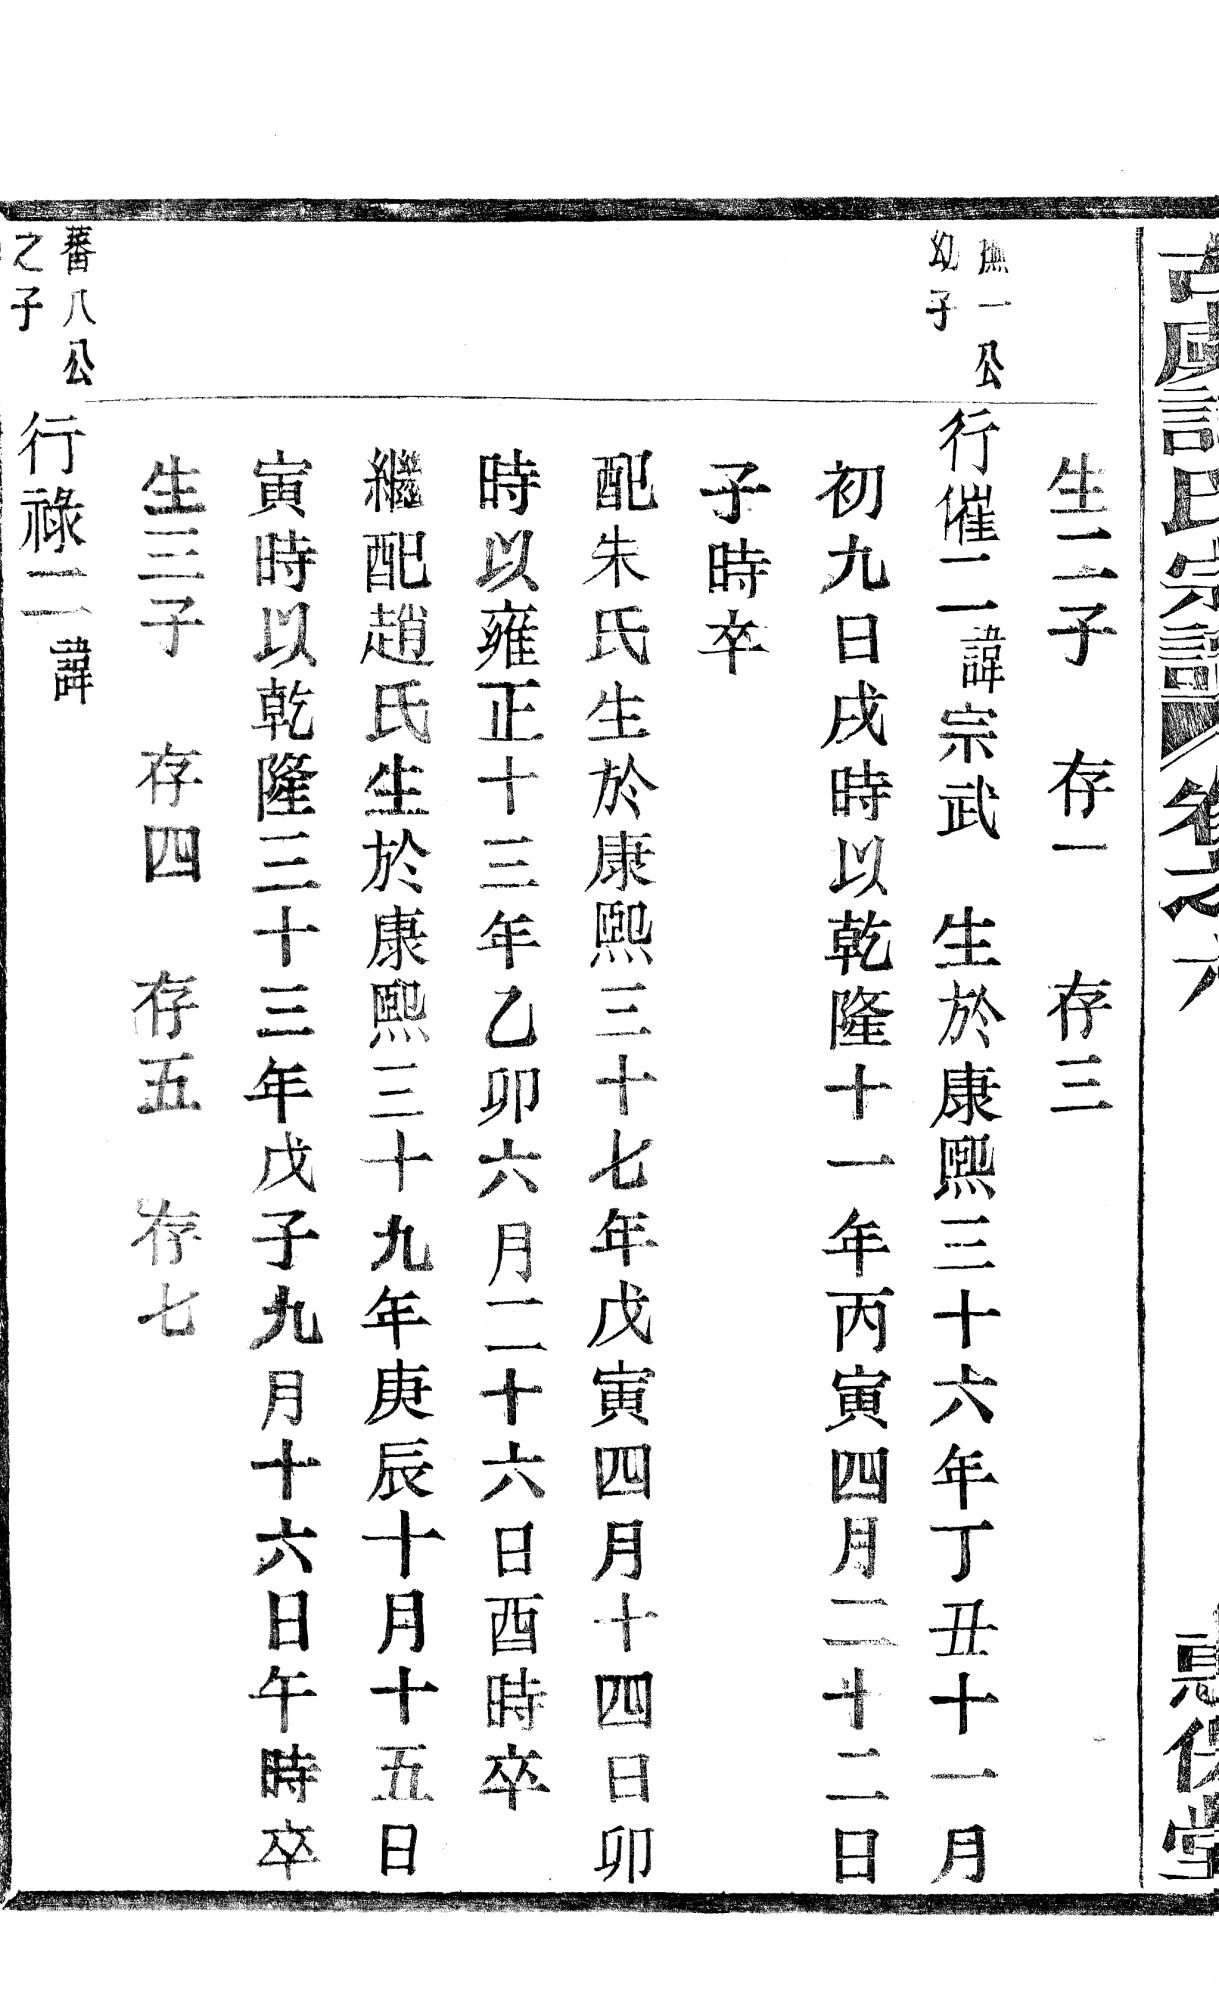 氏宗譜 卷之六
惠保堂
生二子 存一 存三
一公
幼子
行催二 諱宗武 生於康熙三十六年丁丑十一月
初九日戌時以乾隆十一年丙寅四月二十二日
子時卒
配朱氏生於康熙三十七年戊寅四月十四日卯
時以雍正十三年乙卯六月二十六日酉時卒
繼配趙氏生於康熙三十九年庚辰十月十五日
寅時以乾隆三十三年戊子九月十六日午時卒
生三子 存四 存五 存七
蕃八公
之子
行祿二 諱